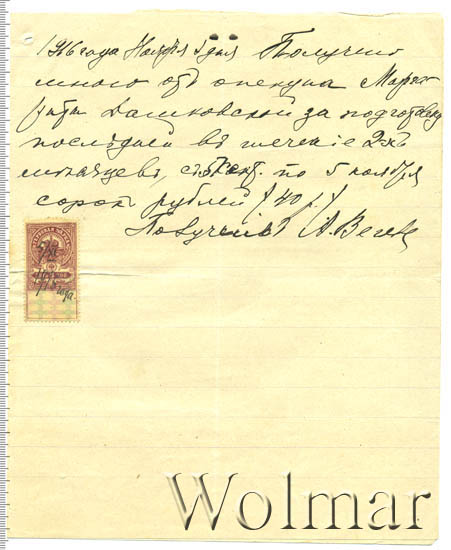 1916 года Ноября 5 дня Получено
мною отъ опекуна Марга
риты Дашковской за подготовку
послѣдней въ теченіе 2хъ
мѣсяцевъ, съ 5 сент. по 5 ноября
сорокъ рублей (40 р.)
Получилъ А.
Wolmar